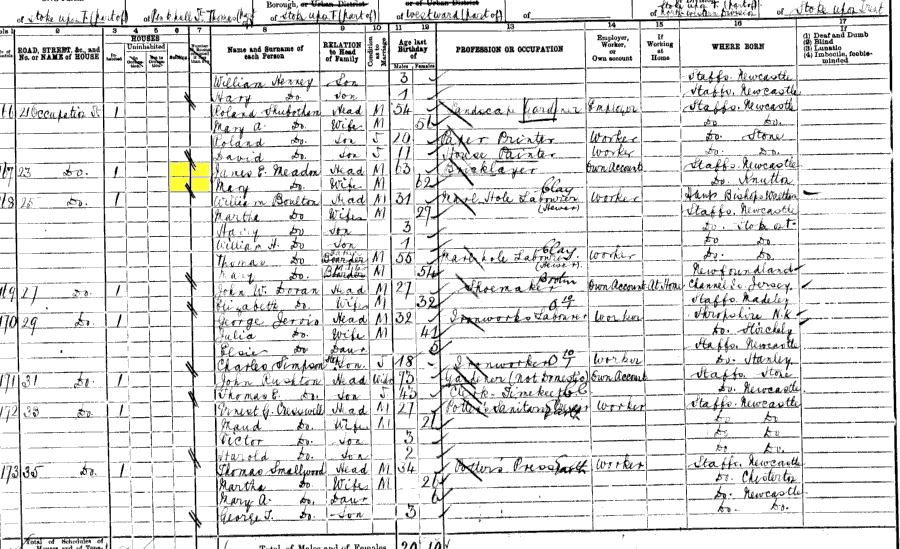 Borough, or Urban District or of Urban District
of Stoke upon T (part of) of Penkhull St. Thomas (part of) of Stoke upon T (part of) of Westward (part of) of of Stoke upon Trent
2 3 4 5 6 7 8 9 10 11 12 13 14 15 16 17
ROAD, STREET, &c., and No. or NAME of HOUSE HOUSES Inhabited Uninhabited Name and Surname of each Person RELATION to Head of Family Condition as to Marriage Age last Birthday of Males Females PROFESSION OR OCCUPATION Employer, Worker, or Own account If Working at Home WHERE BORN If (1) Deaf and Dumb (2) Blind (3) Lunatic (4) Imbecile, feeble-minded
William Henney Son 3 Staffs. Newcastle
Hary Do Son 1 Staffs. Newcastle
166 21 Occupation St 1 Roland Head M 54 Landscape Gardner Employer Staffs. Newcastle
Mary A. Do. Wife M 51 Do. Do.
Roland Do. Son S 20 Paper Printer Worker Do. Stone
David Do. Son S 11 House Painter Worker Do. Do.
167 23 Do. 1 James E. Meadon Head M 63 Bricklayer Own Account Staffs. Newcastle
Mary Do. Wife M 62 Do. Knutton
168 25 Do. 1 William Boulton Head M 31 Marl Hole Labourer Clay (Hewer) Worker Hants Bishops Waltham
Martha Do. Wife M 29 Staffs. Newcastle
Hary Do Son 3 Do. Stoke on T.
William H. Do Son 1 Do Do.
Thomas Do Boarder M 55 Marlhole Labourer Clay (Hewer) Worker Do. Do.
Mary Do. Boarder M 54 Newfoundland
169 27 Do. 1 John W. Doran Head M 27 Shoemaker Own Account At Home Channel Is Jersey
Elizabeth Do Wife M 32 Staffs Madeley
170 29 Do. 1 George Jervis Head M 32 Ironworks Labourer Worker Shropshire N.K
Julia Do Wife M 41 Do. Stirchley
Elsie Do Daur 6 Staffs. Newcastle
Charles Simpson Son S 18 Ironworker Worker Do. Stanley
171 31 Do. 1 John Rushton Head Widr 73 Gardener (not Domestic) Own Account Staffs. Stone
Thomas E. Do. Son S 43 Clerk Timekeeper Do. Newcastle
172 33 Do. 1 Ernest G. Cresswell Head M 27 Potter's Sanitary Presser Worker Staffs. Newcastle
Maud Do. Wife M 21 Do Do
Victor Do Son 3 Do. Do.
Harold Do. Son 2 Do. Do
173 35 Do. 1 Thomas Smallwood Head M 34 Potter's Presser Worker Staffs. Newcastle
Martha Do Wife M 26 Do. Chesterton
Mary A. Do. Daur 6 Do. Newcastle
George T. Do. Son 3 Do. Do.
Total of Schedules of Total of Males and Females 20 10